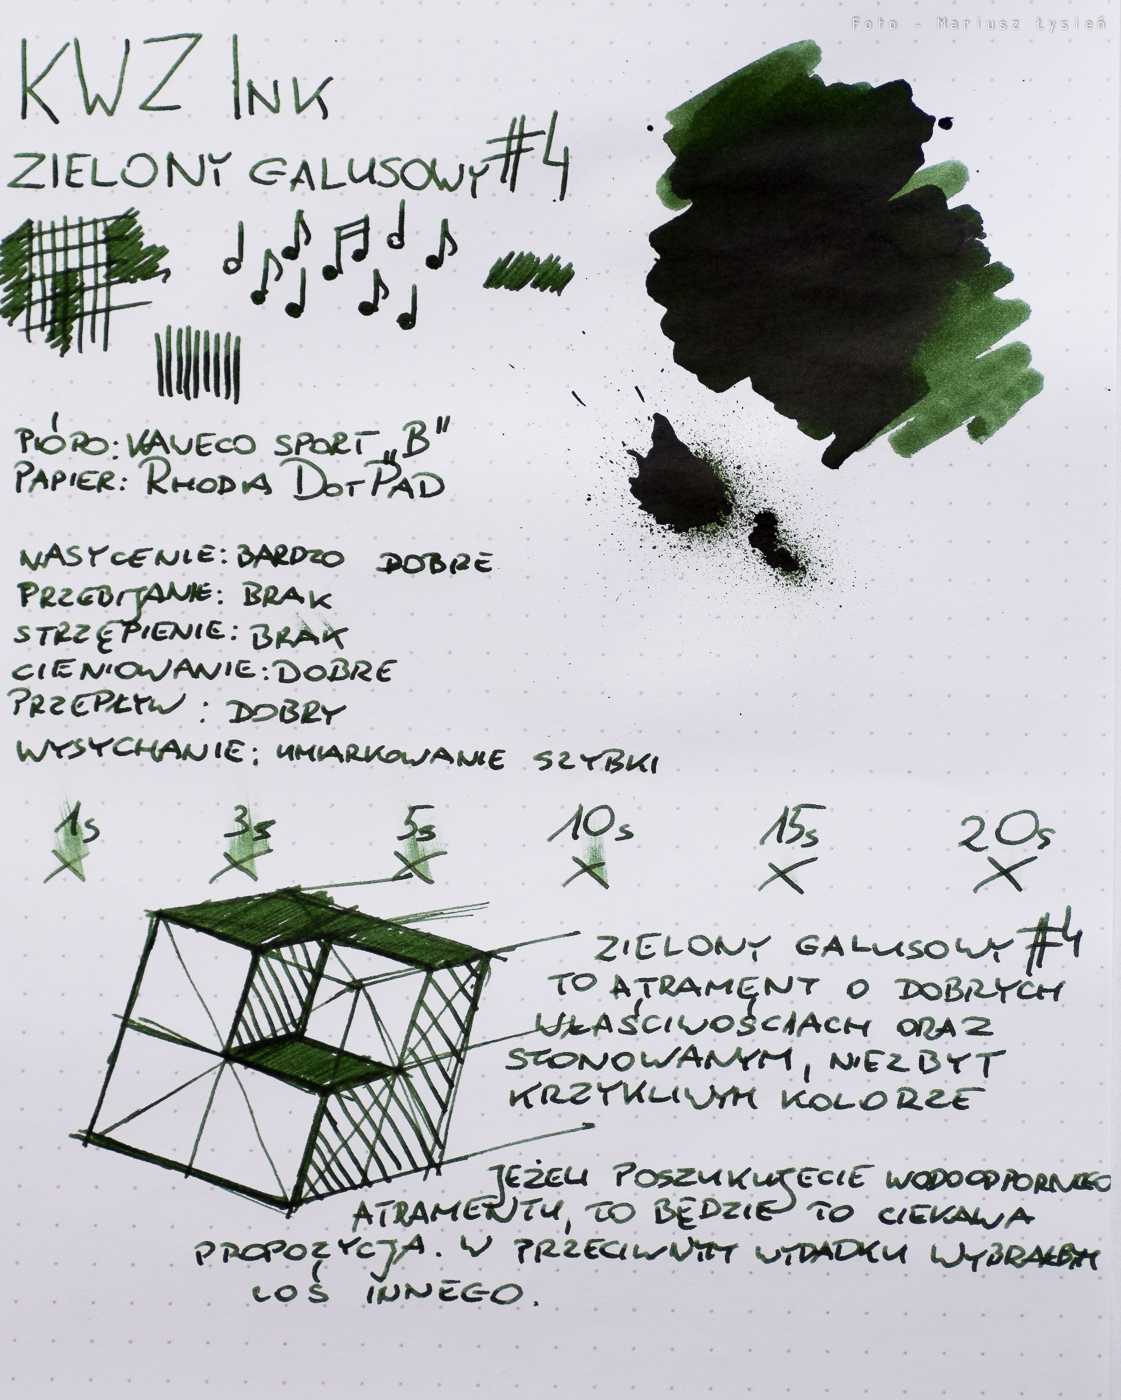 Foto - Mariusz Łysień
KWZ INK
ZIELONY GALUSOWY #4
PIÓRO: KAWECO SPORT „B”
PAPIER: RHODIA DOTPAD
NASYCENIE: BARDZO DOBRE
PRZEBIJANIE: BRAK
STRZĘPIENIE: BRAK
CIENIOWANIE: DOBRE
PRZEPŁYW : DOBRY
WYSYCHANIE: UMIARKOWANIE SZYBKI
1s 3s 5s 10s 15s 20s
ZIELONY GALUSOWY #4
TO ATRAMENT O DOBRYCH
WŁAŚCIWOŚCIACH ORAZ
STONOWANYM, NIEZBYT
KRZYKLIWYM KOLORZE
JEŻELI POSZUKUJECIE WODOODPORNEGO
ATRAMENTU, TO BĘDZIE TO CIEKAWA
PROPOZYCJA. W PRZECIWNYM WYPADKU WYBRAŁBYM
COŚ INNEGO.